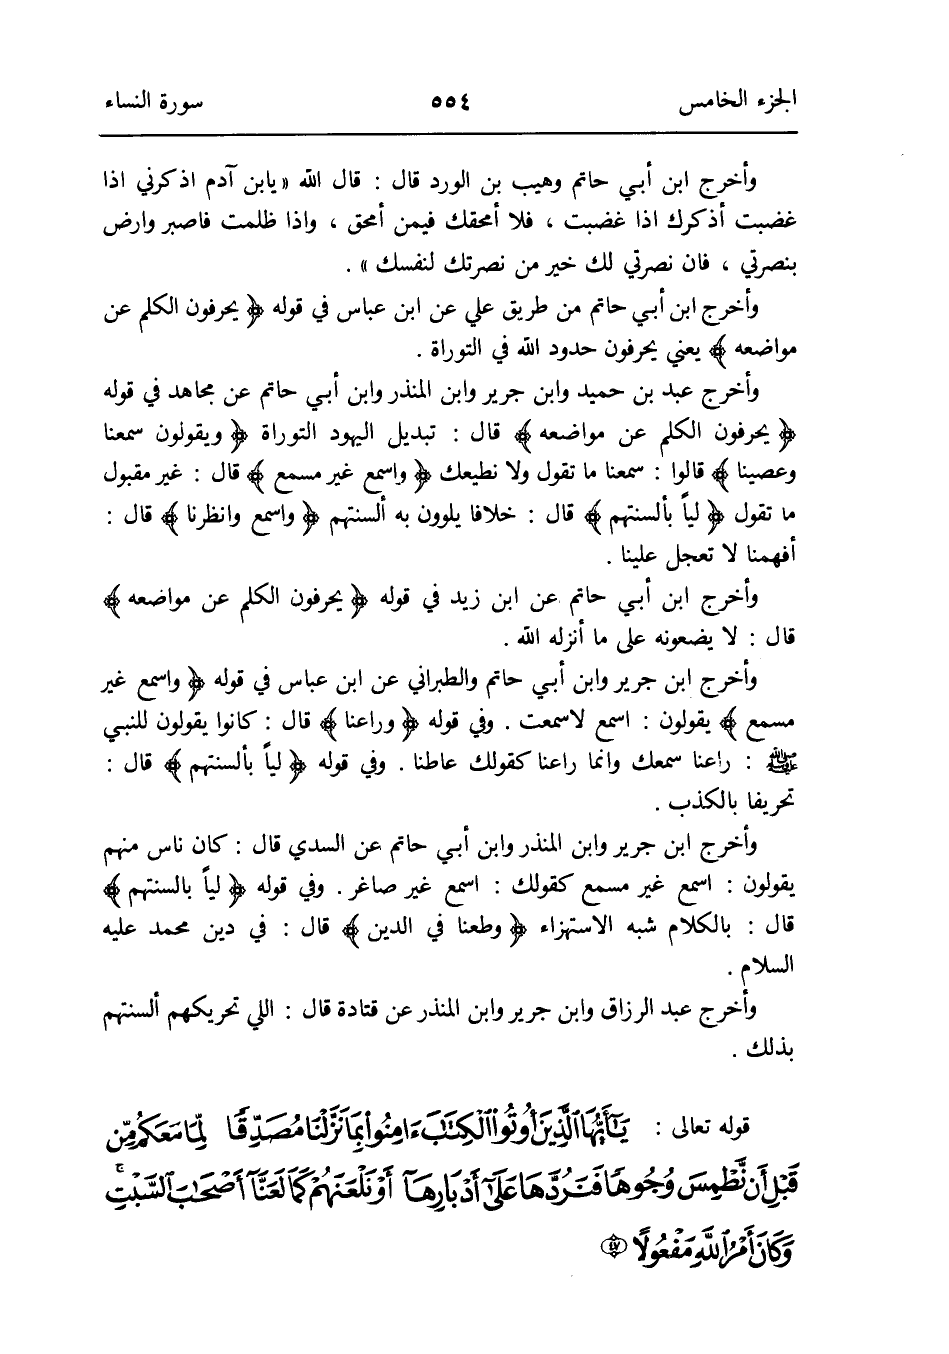 الجزء الخامس ٥٥٤ سورة النساء
وأخرج ابن أبي حاتم وهيب بن الورد قال : قال الله « يابن آدم اذكرني اذا
غضبت أذكرك اذا غضبت ، فلا أمحقك فيمن أمحق ، واذا ظلمت فاصبر وارض
بنصرتي ، فان نصرتي لك خير من نصرتك لنفسك » .
وأخرج ابن أبي حاتم من طريق علي عن ابن عباس في قوله ﴿ يحرفون الكلم عن
مواضعه ﴾ يعني يحرفون حدود الله في التوراة .
وأخرج عبد بن حميد وابن جرير وابن المنذر وابن أبي حاتم عن مجاهد في قوله
﴿ يحرفون الكلم عن مواضعه ﴾ قال : تبديل اليهود التوراة ﴿ ويقولون سمعنا
وعصينا ﴾ قالوا : سمعنا ما تقول ولا نطيعك ﴿ واسمع غير مسمع ﴾ قال : غير مقبول
ما تقول ﴿ لياً بألسنتهم ﴾ قال : خلافا يلوون به ألسنتهم ﴿ واسمع وانظرنا ﴾ قال :
أفهمنا لا تعجل علينا .
وأخرج ابن أبي حاتم عن ابن زيد في قوله ﴿ يحرفون الكلم عن مواضعه ﴾
قال : لا يضعونه على ما أنزله الله .
وأخرج ابن جرير وابن أبي حاتم والطبراني عن ابن عباس في قوله ﴿ واسمع غير
مسمع ﴾ يقولون : اسمع لاسمعت . وفي قوله ﴿ وراعنا ﴾ قال : كانوا يقولون للنبي
ﷺ : راعنا سمعك وانما راعنا كقولك عاطنا . وفي قوله ﴿ لياً بألسنتهم ﴾ قال :
تحريفا بالكذب .
وأخرج ابن جرير وابن المنذر وابن أبي حاتم عن السدي قال : كان ناس منهم
يقولون : اسمع غير مسمع كقولك : اسمع غير صاغر . وفي قوله ﴿ لياً بالسنتهم ﴾
قال : بالكلام شبه الاستهزاء ﴿ وطعنا في الدين ﴾ قال : في دين محمد عليه
السلام .
وأخرج عبد الرزاق وابن جرير وابن المنذر عن قتادة قال : اللي تحريكهم ألسنتهم
بذلك .
قوله تعالى : يَٰٓأَيُّهَا ٱلَّذِينَ أُوتُوا۟ ٱلْكِتَٰبَ ءَامِنُوا۟ بِمَا نَزَّلْنَا مُصَدِّقًا لِّمَا مَعَكُم مِّن
قَبْلِ أَن نَّطْمِسَ وُجُوهًا فَنَرُدَّهَا عَلَىٰٓ أَدْبَارِهَآ أَوْ نَلْعَنَهُمْ كَمَا لَعَنَّآ أَصْحَٰبَ ٱلسَّبْتِ ۚ
وَكَانَ أَمْرُ ٱللَّهِ مَفْعُولًا ۝٤٧